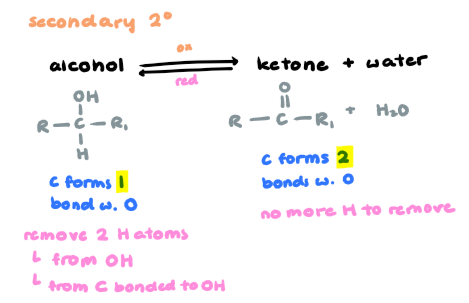 secondary 2°
ox
alcohol ketone + water
red
OH O
R — C — R₁ R — C — R₁ + H₂O
H
C forms 1
bond w. O
C forms 2
bonds w. O
no more H to remove
remove 2 H atoms
↳ from OH
↳ from C bonded to OH